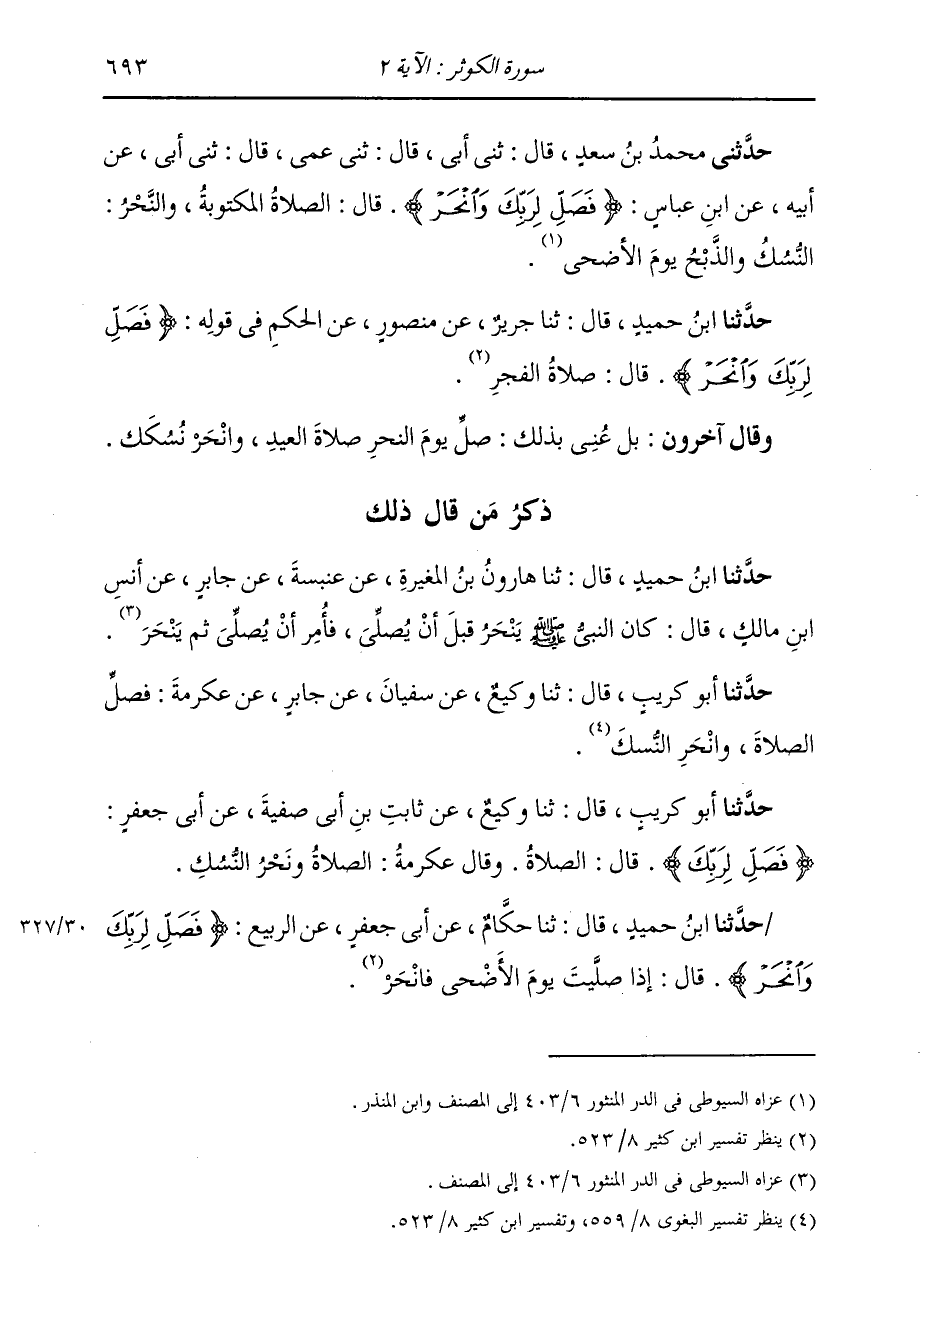 سورة الكوثر : الآية ٢ ٦٩٣
حدَّثنى محمدُ بنُ سعدٍ ، قال : ثنى أبى ، قال : ثنى عمى ، قال : ثنى أبى ، عن
أبيه ، عن ابنِ عباسٍ : ﴿ فَصَلِّ لِرَبِّكَ وَٱنْحَرْ ﴾ . قال : الصلاةُ المكتوبةُ ، والنَّحْرُ :
النُّسُكُ والذَّبْحُ يومَ الأضحى(١) .
حدَّثنا ابنُ حميدٍ ، قال : ثنا جريرٌ ، عن منصورٍ ، عن الحكمِ فى قولِه : ﴿ فَصَلِّ
لِرَبِّكَ وَٱنْحَرْ ﴾ . قال : صلاةُ الفجرِ(٢) .
وقال آخرون : بل عُنِى بذلك : صلِّ يومَ النحرِ صلاةَ العيدِ ، وانْحَرْ نُسُكَك .
ذكرُ مَن قال ذلك
حدَّثنا ابنُ حميدٍ ، قال : ثنا هارونُ بنُ المغيرةِ ، عن عنبسةَ ، عن جابرٍ ، عن أنسِ
ابنِ مالكٍ ، قال : كان النبىُّ ﷺ يَنْحَرُ قبلَ أنْ يُصلِّىَ ، فأُمِر أنْ يُصلِّىَ ثم يَنْحَرَ(٣) .
حدَّثنا أبو كريبٍ ، قال : ثنا وكيعٌ ، عن سفيانَ ، عن جابرٍ ، عن عكرمةَ : فصلِّ
الصلاةَ ، وانْحَرِ النُّسكَ(٤) .
حدَّثنا أبو كريبٍ ، قال : ثنا وكيعٌ ، عن ثابتِ بنِ أبى صفيةَ ، عن أبى جعفرٍ :
﴿ فَصَلِّ لِرَبِّكَ ﴾ . قال : الصلاةُ . وقال عكرمةُ : الصلاةُ ونَحْرُ النُّسُكِ .
/حدَّثنا ابنُ حميدٍ ، قال : ثنا حكَّامٌ ، عن أبى جعفرٍ ، عن الربيع : ﴿ فَصَلِّ لِرَبِّكَ ٣٢٧/٣٠
وَٱنْحَرْ ﴾ . قال : إذا صلَّيتَ يومَ الأَضْحى فانْحَرْ(٢) .
(١) عزاه السيوطى فى الدر المنثور ٤٠٣/٦ إلى المصنف وابن المنذر .
(٢) ينظر تفسير ابن كثير ٨/ ٥٢٣.
(٣) عزاه السيوطى فى الدر المنثور ٤٠٣/٦ إلى المصنف .
(٤) ينظر تفسير البغوى ٨/ ٥٥٩، وتفسير ابن كثير ٨/ ٥٢٣.